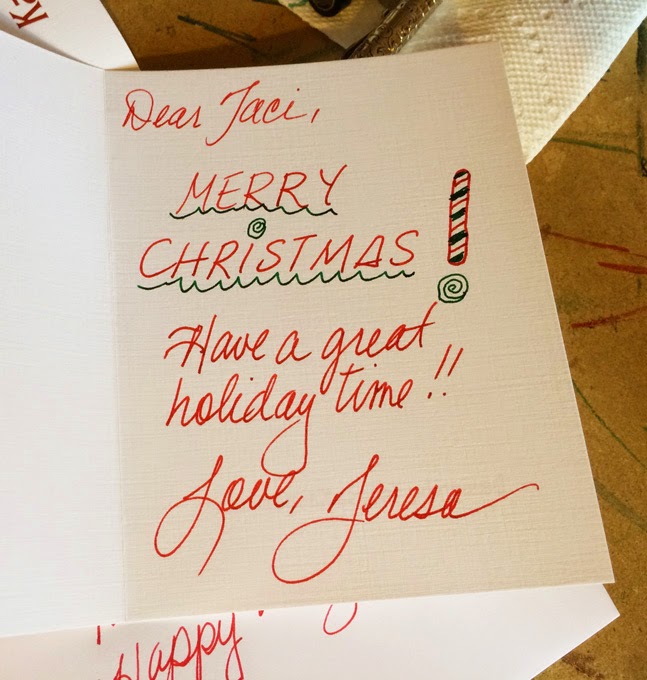 Dear Taci,
MERRY
CHRISTMAS!
Have a great
holiday time!!
Love, Teresa
Happy